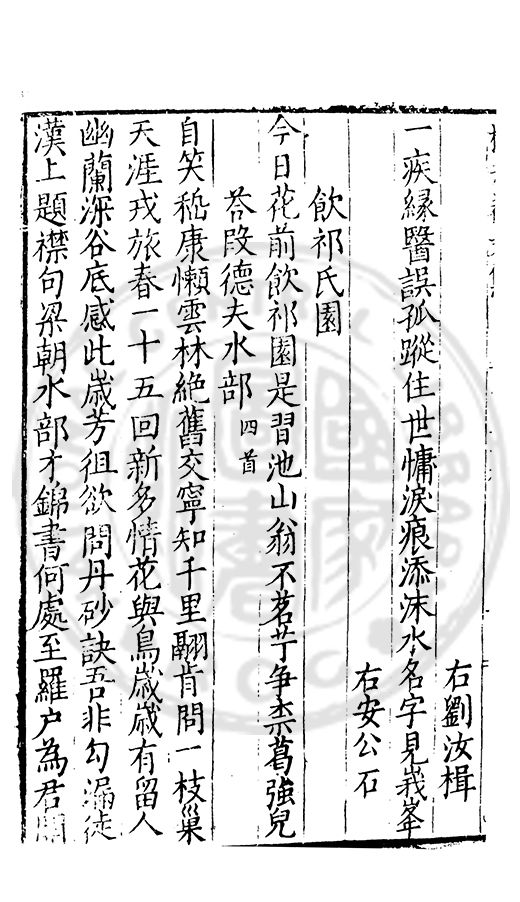 右劉汝楫
一疾緣醫誤孤蹤住世慵淚痕添沫水名字見峩峯
右安公石
飲祁氏園
今日花前飲祁園是習池山翁不茗艼爭柰葛強兒
荅段德夫水部 四首
自笑嵇康懶雲林絕舊交寧知千里翮肯問一枝巢
天涯戎旅春一十五回新多情花與鳥歲歲有留人
幽蘭深谷底感此歲芳徂欲問丹砂訣吾非勾漏徒
漢上題襟句梁朝水部才錦書何處至羅户為君開